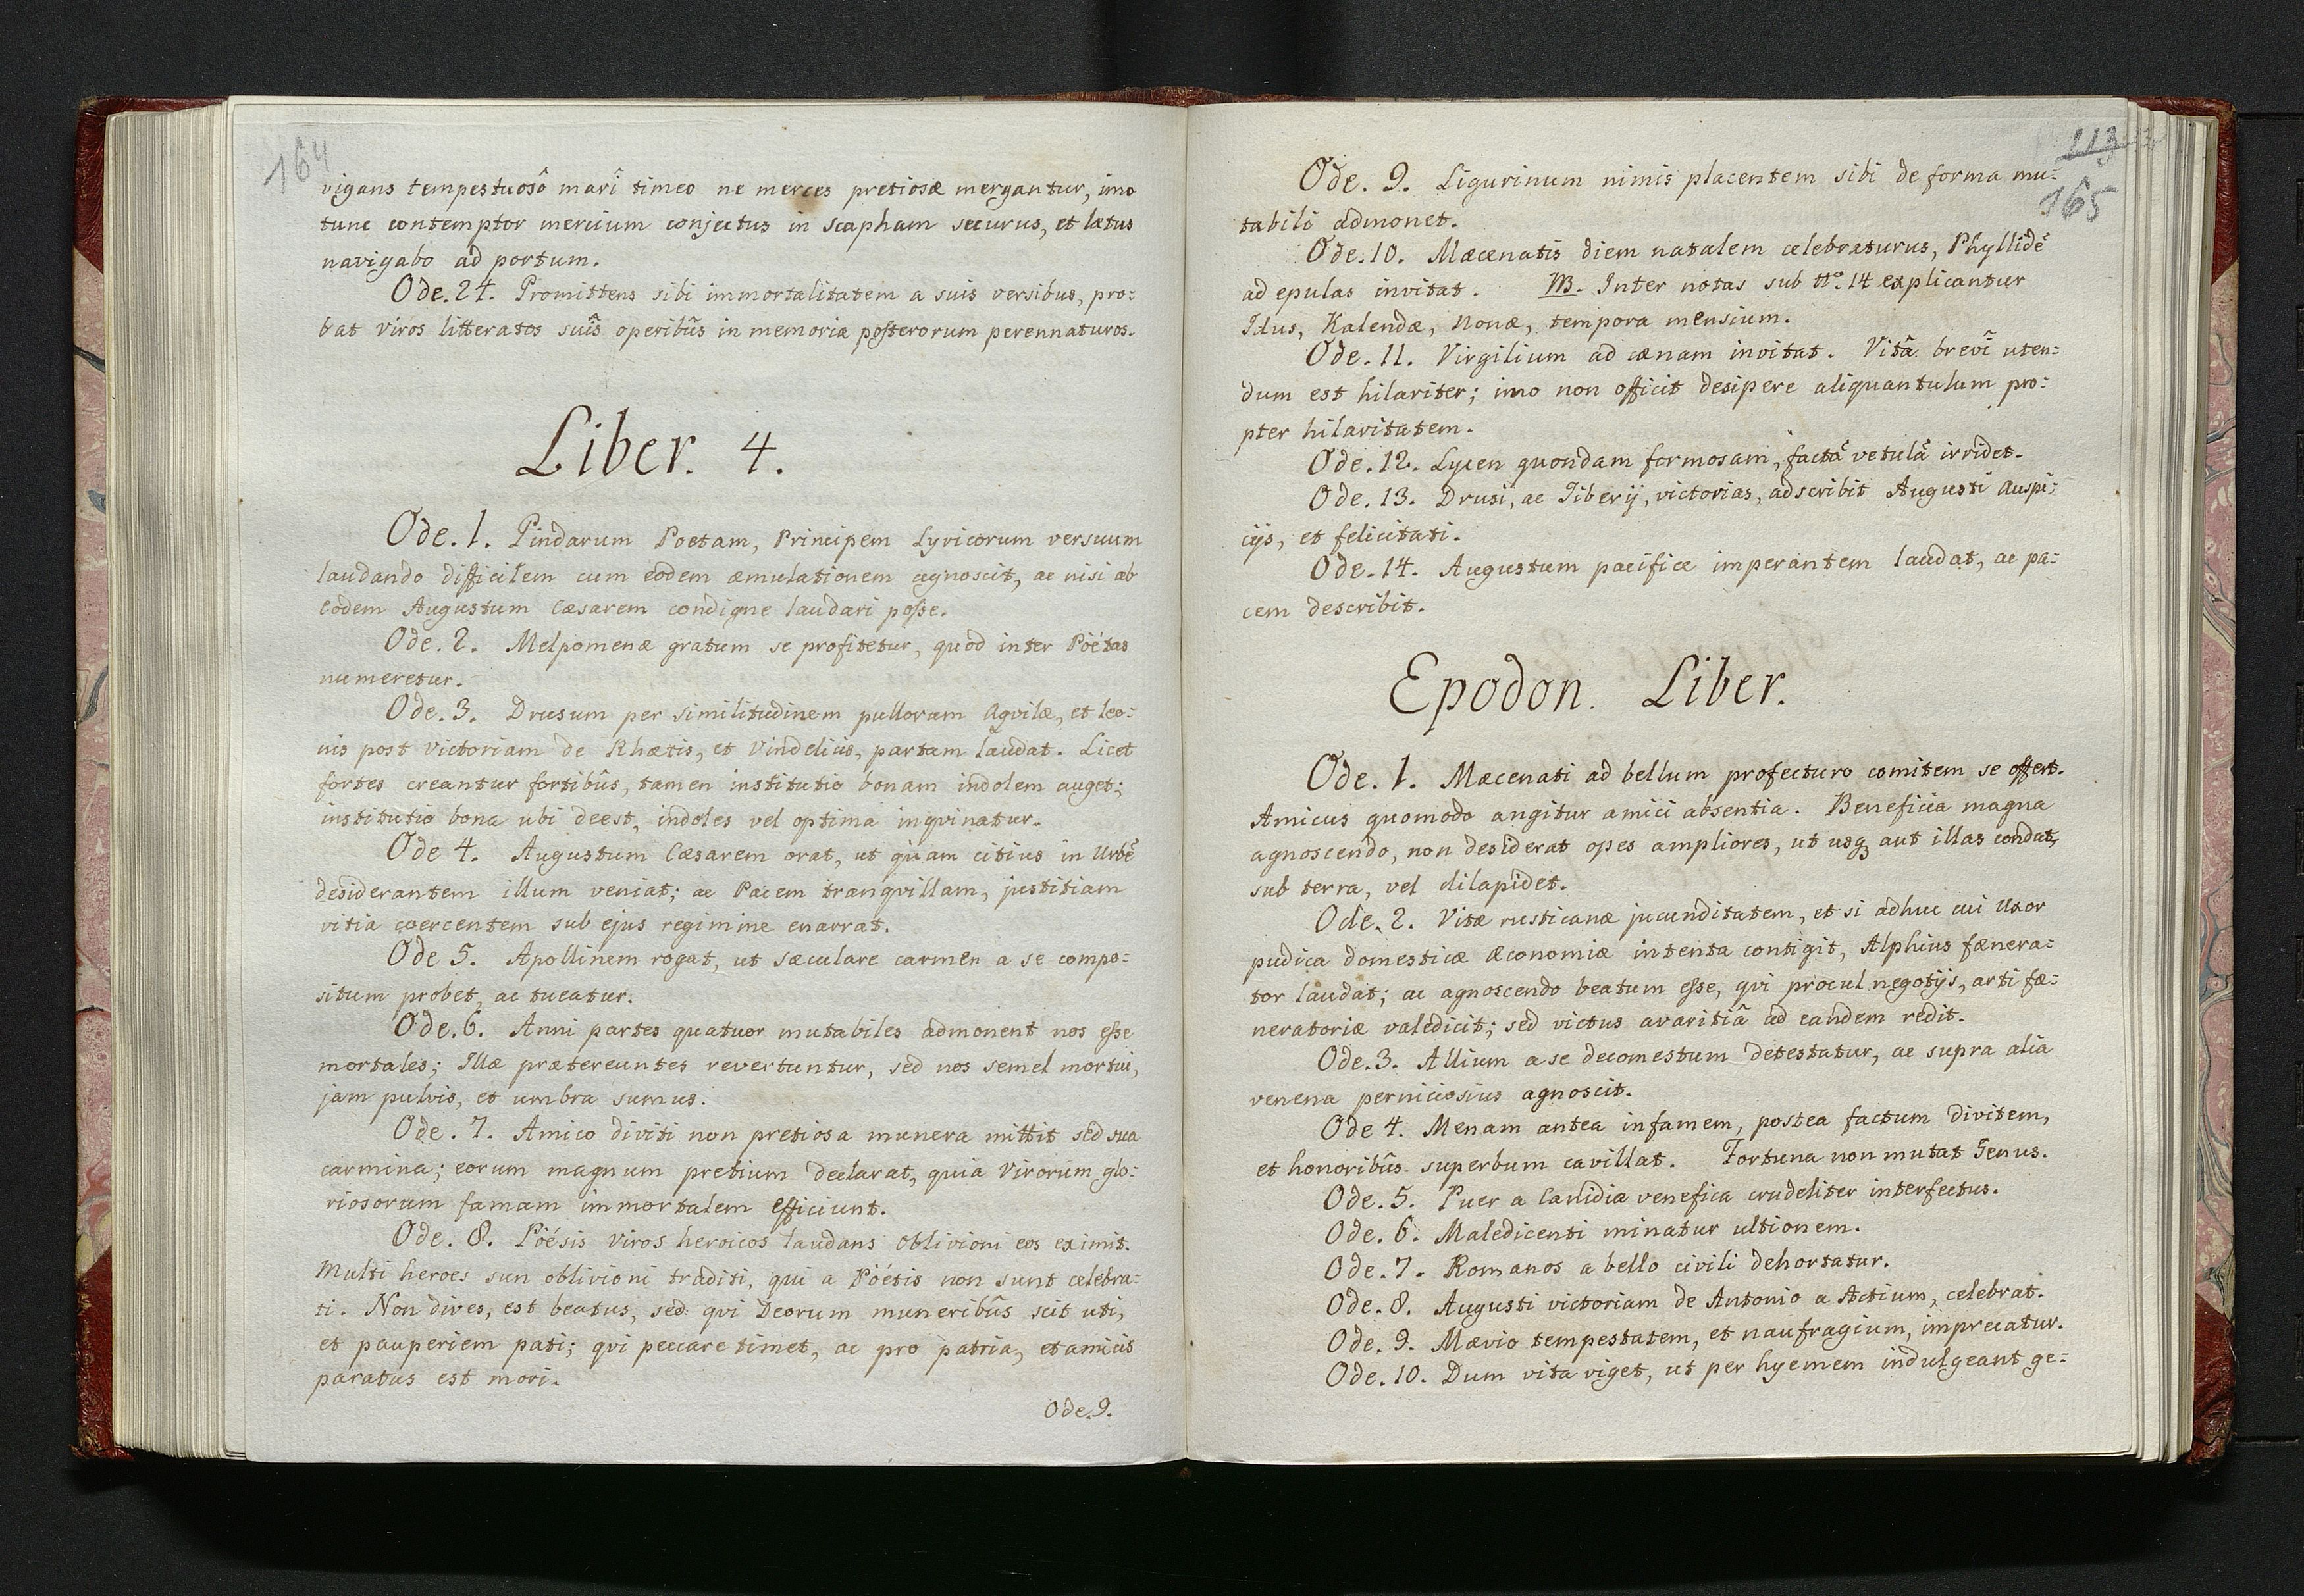 164
vigans tempestuosô marî timeo ne merces pretiosæ mergantur, imo
tunc contemptor mercium conjectus in scapham securus, et lætus
navigabo ad portum.
Ode. 24. Promittens sibi immortalitatem a suis versibus, pro:
bat viros litteratos suîs operibûs in memoria posterorum perennaturos.
Liber. 4.
Ode. 1. Pindarum Poetam, Principem Lyricorum versuum
laudando difficilem cum eodem æmulationem agnoscit, ac nisi ab
eodem Augustum Cæsarem condigne laudari posse.
Ode. 2. Melpomenæ gratum se profitetur, quòd inter Pöétas
numeretur.
Ode. 3. Drusum per similitudinem pullorum Aqvilæ, et leo:
nis post victoriam de Rhætis, et Vindelicis, partam laudat. Licet
fortes creantur fortibûs, tamen institutio bonam indolem auget;
institutio bona ubi deest, indoles vel optima inqvinatur.
Ode 4. Augustum Cæsarem orat, ut quam citius in Urbẽ
desiderantem illum veniat; ac Pacem tranqvillam, justitiam
vitia coercentem sub ejus regimine enarrat.
Ode 5. Apollinem rogat, ut sæculare carmen a se compo:
situm probet, ac tueatur.
Ode. 6. Anni partes quatuor mutabiles admonent nos esse
mortales; Illæ prætereuntes revertuntur, sed nos semel mortui,
jam pulvis, et umbra sumus.
Ode. 7. Amico diviti non pretiosa munera mittit sed sua
carmina; eorum magnum pretium declarat, quia Virorum glo:
riosorum famam immortalem efficiunt.
Ode. 8. Pöésis viros heroicos laudans oblivioni eos eximit.
Multi heroes sun oblivioni traditi, qui a Pöétis non sunt celebra:
ti. Non dives, est beatus, sed qvi Deorum muneribûs scit uti,
et pauperiem pati; qvi peccare timet, ac pro patria, et amicis
paratus est mori.
Ode. 9.
113
165
Ode. 9. Ligurinum nimis placentem sibi de forma mu:
tabili admonet.
Ode. 10. Mæcenatis diem natalem celebraturus, Phyllidẽ
ad epulas invitat. NB. Inter notas sub No. 14 explicantur
Idus, Kalendæ, Nonæ, tempora mensium.
Ode. 11. Virgilium ad cænam invitat. Vitâ brevî uten:
dum est hilariter; imo non officit desipere aliquantulum pro:
pter hilaritatem.
Ode. 12. Lycen quondam formosam, factã vetulã irridet.
Ode. 13. Drusi, ac Tiberij, victorias, adscribit Augusti Auspi:
cijs, et felicitati.
Ode. 14. Augustum pacifice imperantem laudat, ac pa:
cem describit.
Epodon. Liber.
Ode. 1. Mæcenati ad bellum profecturo comitem se offert.
Amicus quomodo angitur amici absentia. Beneficia magna
agnoscendo, non desiderat opes ampliores, ut usq₃ aut illas condat,
sub terra, vel dilapidet.
Ode. 2. Vitæ rusticanæ jucunditatem, et si adhuc cui Uxor
pudica domesticæ œconomiæ intenta contigit, Alphius fænera:
tor laudat; ac agnoscendo beatum esse, qvi procul negotijs, arti fæ:
neratoriæ valedicit; sed victus avaritiâ ad eandem redit.
Ode. 3. Allium a se decomestum detestatur, ac supra alia
venena perniciosius agnoscit.
Ode 4. Menam antea infamem, postea factum divitem,
et honoribûs superbum cavillat. Fortuna non mutat Genus.
Ode. 5. Puer a Canidia venefica crudeliter interfectus.
Ode. 6. Maledicenti minatur ultionem.
Ode. 7. Romanos a bello civili dehortatur.
Ode. 8. Augusti victoriam de Antonio a Actium, celebrat.
Ode. 9. Mævio tempestatem, et naufragium, imprecatur.
Ode. 10. Dum vita viget, ut per hyemem indulgeant ge: